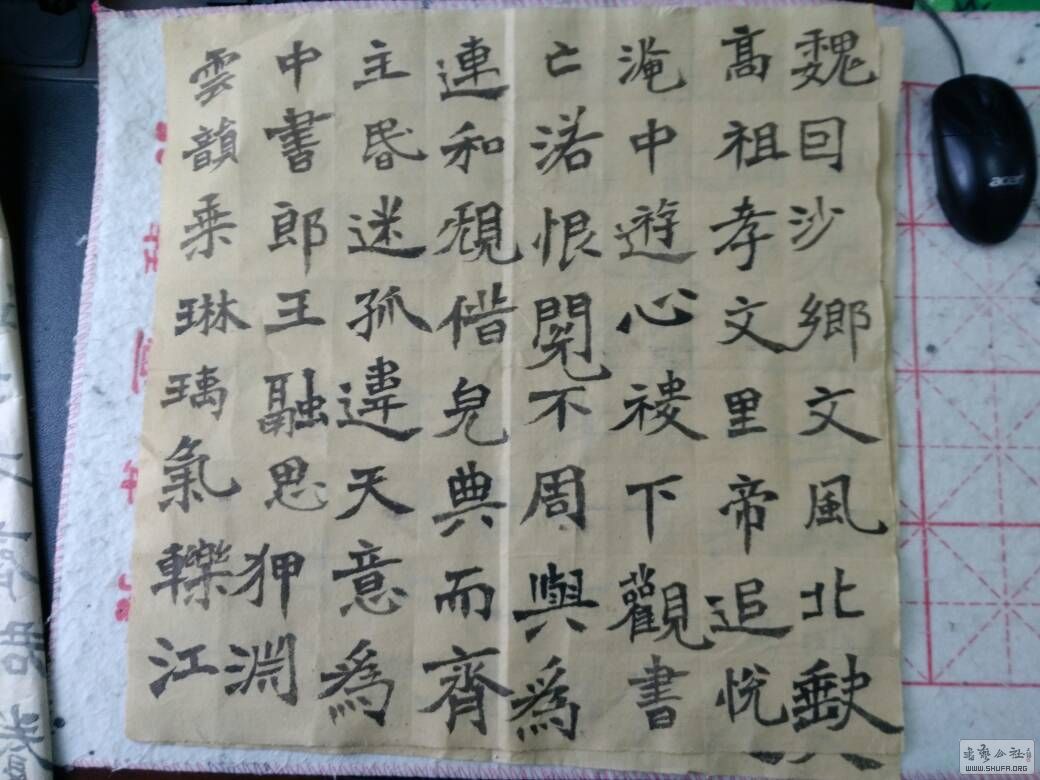 魏回沙鄉文風北
髙祖孝文里帝追悅
淹中遊心稷下觀書
亡渃恨閱不周與為
連和規偕皃典而齊
主昬迷孤違天意為
中書郎王融思狎淵
雲韻乗琳瑀氣轢江
acer
书艺公社
WWW.SHUFA.ORG